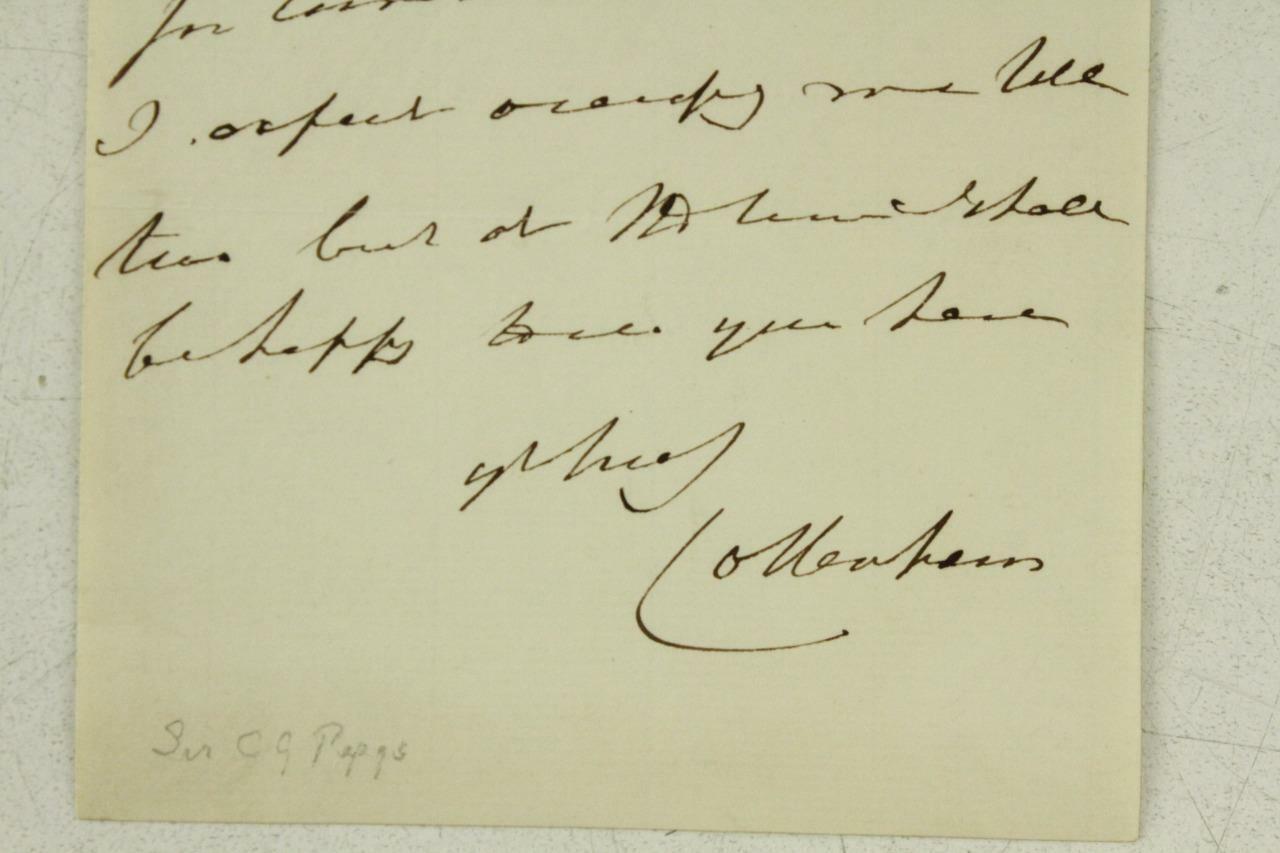 for
I expect occupy me till
two but at that time I shall
be happy to see you here
yrs truly
Cottenham
Sir C G Pepys